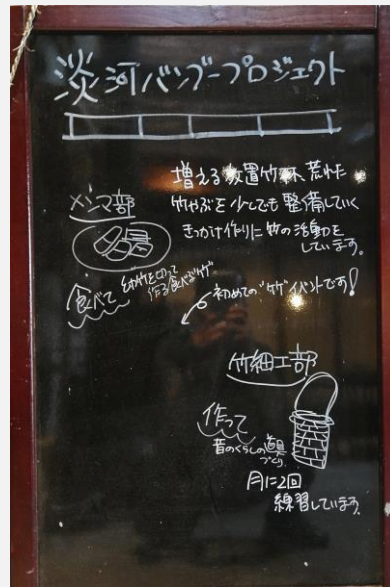 淡河バンブープロジェクト
増える放置竹林、荒れた
竹やぶを少しでも整備していく
きっかけ作りに竹の活動を
しています。
メンマ部
食べて
作る食べる竹
初めての"竹"イベントです!
竹細工部
作って
昔のくらしの道具
づくり
月に2回
練習しています。